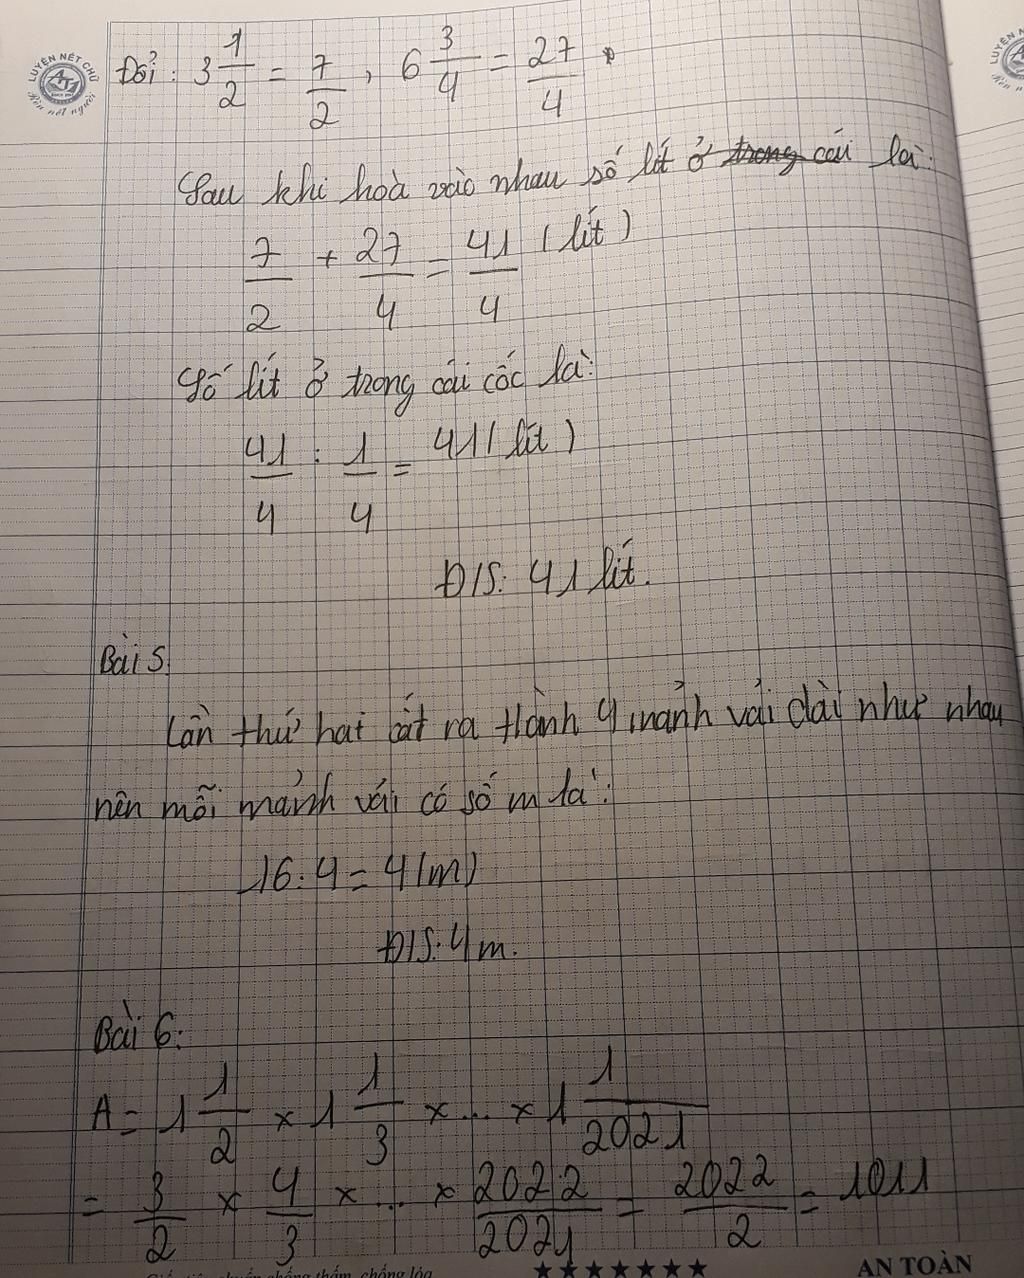 LUYỆN NÉT CHỮ
Rèn nết người
Đổi: 3 1/2 = 7/2, 6 3/4 = 27/4
Sau khi hoà vào nhau số lít ở trong cái là:
7/2 + 27/4 = 41/4 (lít)
Số lít ở trong cái cốc là:
41/4 : 1/4 = 41 (lít)
Đ/S: 41 lít.
Bài 5.
Lần thứ hai cắt ra thành 4 mảnh vải dài như nhau
nên mỗi mảnh vải có số m là:
16:4 = 4 (m)
Đ/S: 4m.
Bài 6:
A = 1 1/2 × 1 1/3 × ... × 1 1/2021
= 3/2 × 4/3 × ... × 2022/2021 = 2022/2 = 1011
chống thấm, chống lóa ★★★★★★★ AN TOÀN